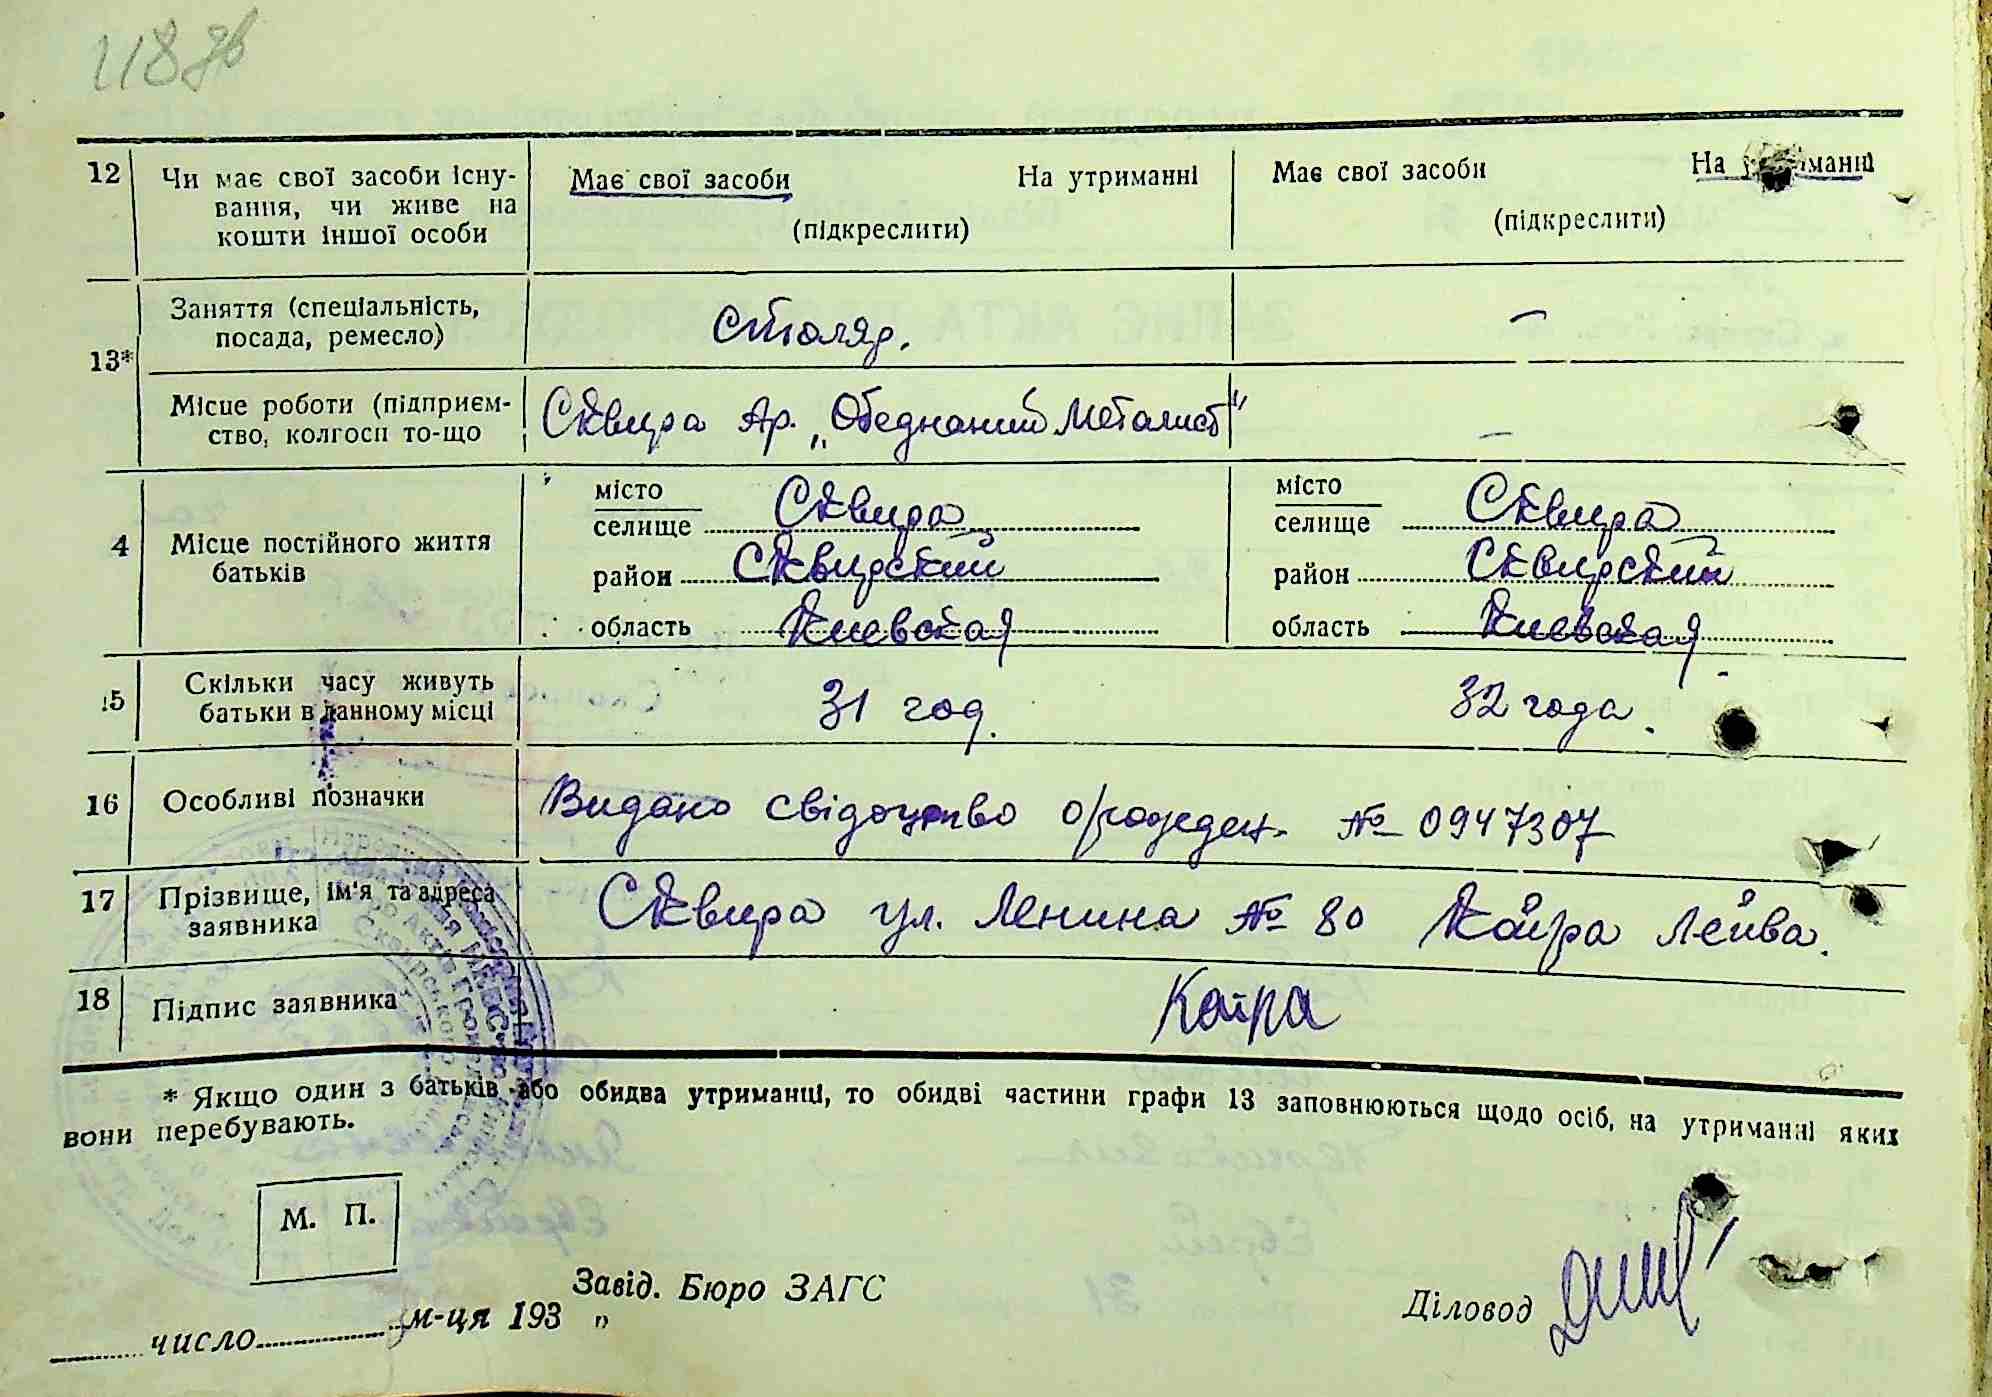 118 зв
12 Чи має свої засоби існу- Має свої засоби На утриманні Має свої засоби На утриманні
вання, чи живе на (підкреслити) (підкреслити)
кошти іншої особи
13* Заняття (спеціальність, Столяр. —
посада, ремесло)
Місце роботи (підприєм- Сквира Ар. „Обеднаний Металист" —
ство, колгосп то-що
4 Місце постійного життя місто Сквира місто Сквира
батьків селище селище
район Сквирский район Сквирский
область Киевская область Киевская
15 Скільки часу живуть 31 год. 32 года.
батьки в данному місці
16 Особливі позначки Видано свідоцтво о рожден. № 0947307
17 Прізвище, ім'я та адреса Сквира ул. Ленина № 80 Койра Лейва.
заявника
18 Підпис заявника Койра
* Якщо один з батьків або обидва утриманці, то обидві частини графи 13 заповнюються щодо осіб, на утриманні яких
вони перебувають.
М. П.
Завід. Бюро ЗАГС
число м-ця 193 „ Діловод